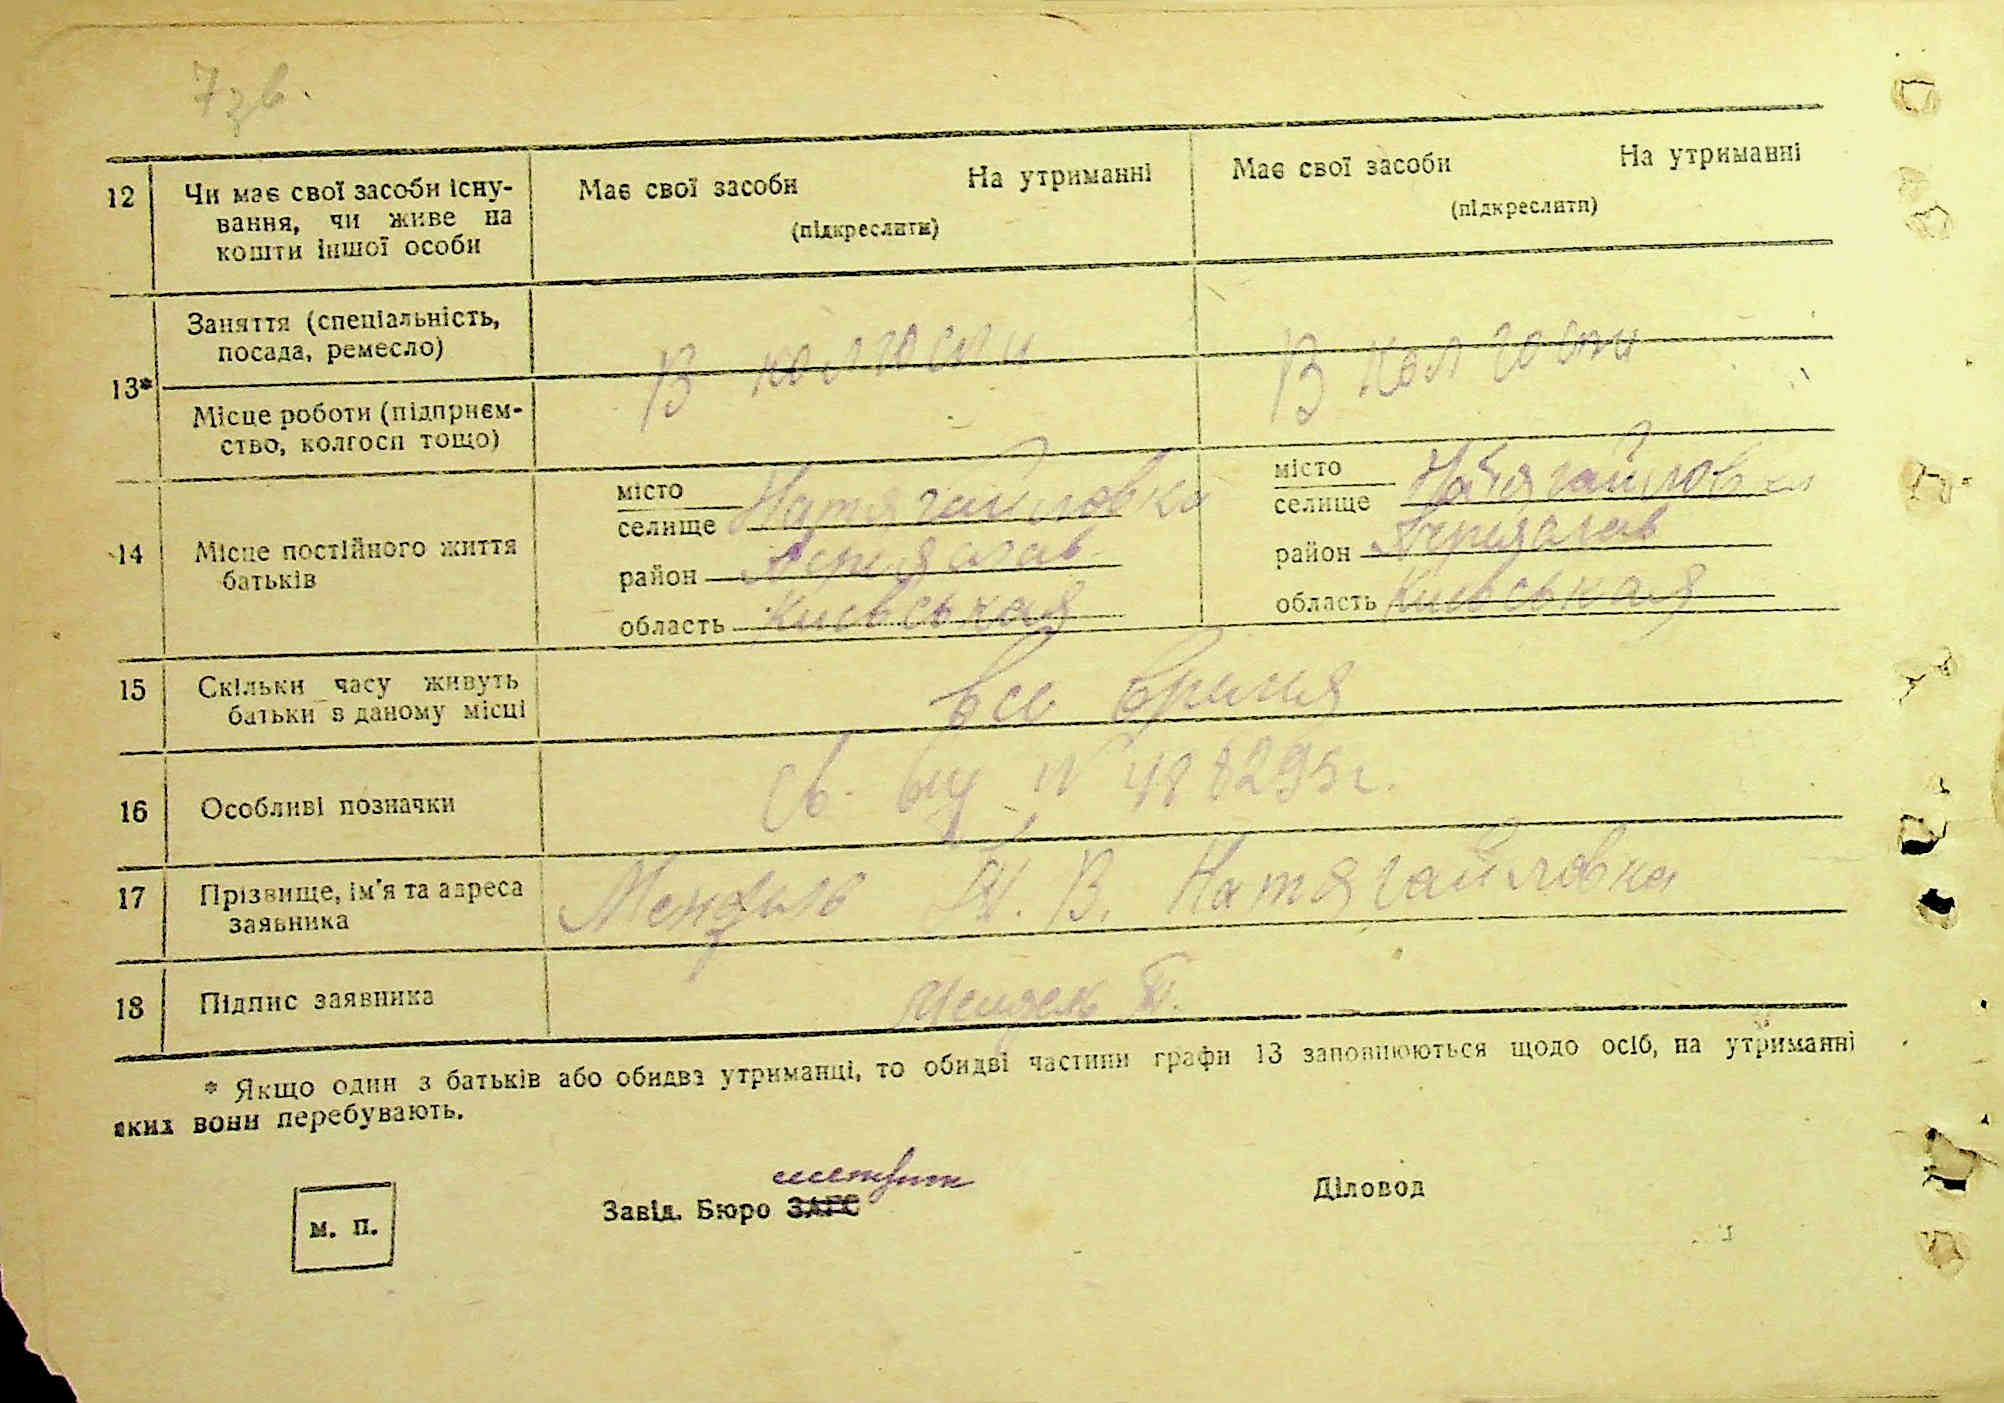 7 зв.
12 Чи має свої засоби існу- Має свої засоби На утриманні Має свої засоби На утриманні
вання, чи живе на (підкреслити) (підкреслити)
кошти іншої особи
13* Заняття (спеціальність,
посада, ремесло) В колгоспи В колгоспи
Місце роботи (підприєм-
ство, колгосп тощо)
14 Місце постійного життя
батьків
місто
селище Натягайловка
район
область Киевськая
місто
селище Натягайловка
район
область Киевськая
15 Скільки часу живуть
батьки в даному місці все время
16 Особливі позначки Св. № 488295
17 Прізвище, ім'я та адреса
заявника В. Натягайловка
18 Підпис заявника
* Якщо один з батьків або обидва утриманці, то обидві частини графи 13 заповнюються щодо осіб, на утриманні
яких вони перебувають.
м. п.
Завід. Бюро ЗАГС
Діловод